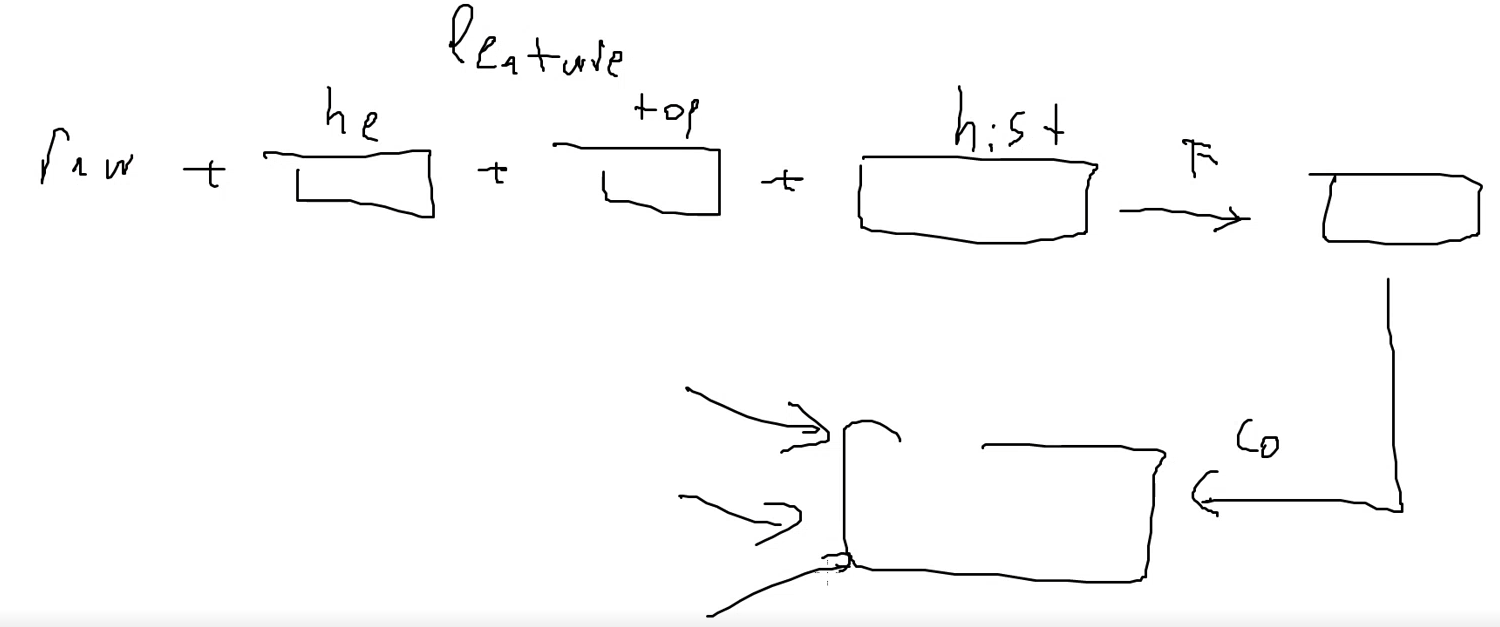 feature
raw + he + top + hist F
Co